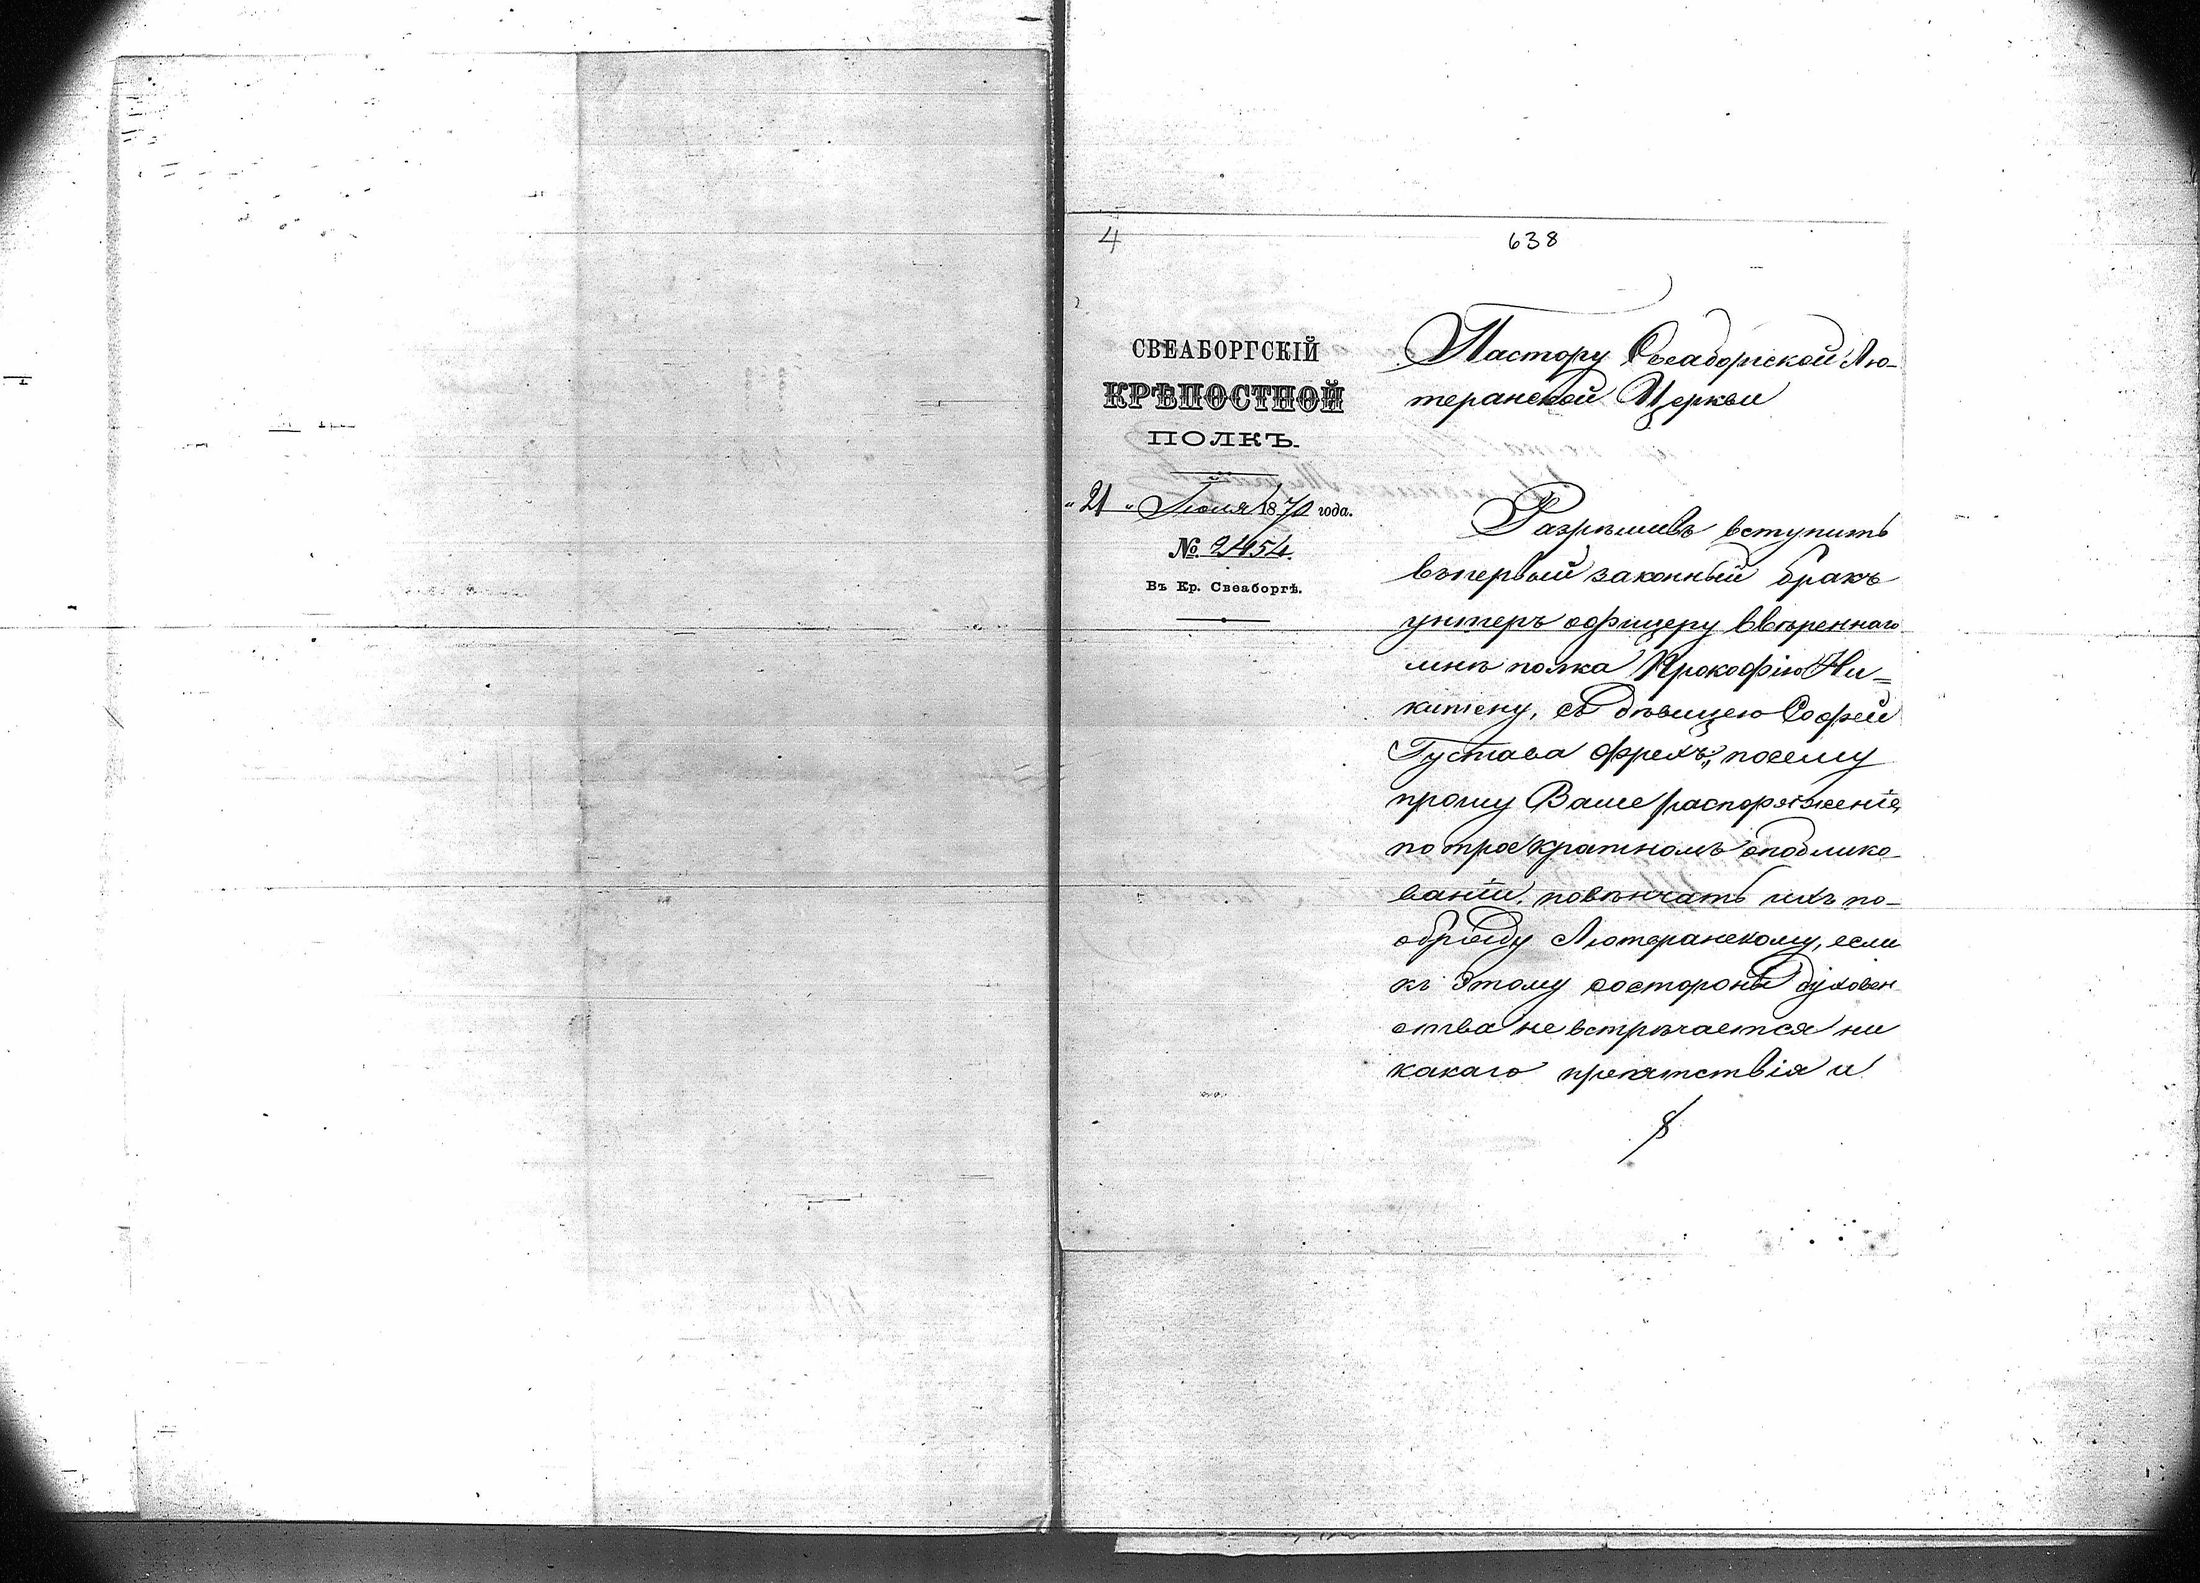 4
638
СВЕАБОРГСКІЙ
КРѢПОСТНОЙ
ПОЛКЪ.
"21" Іюля 1870 года.
№ 2454.
Въ Кр. Свеаборгѣ.
Пастору Свеаборгской Лю-
теранской Церкви
Разрѣшивъ вступить
въ первый законный бракъ
унтеръ офицеру ввѣреннаго
мнѣ полка Прокофію Ни-
китену, съ дѣвицею Софей
Густава Фрехъ, посему
прошу Ваше распоряженіе,
по троекратномъ опоблико-
ваніи, повѣнчать ихъ по-
обряду Лютеранскому, если
къ этому состороны духовен
ства не встрѣчается ни
какаго препятствія и